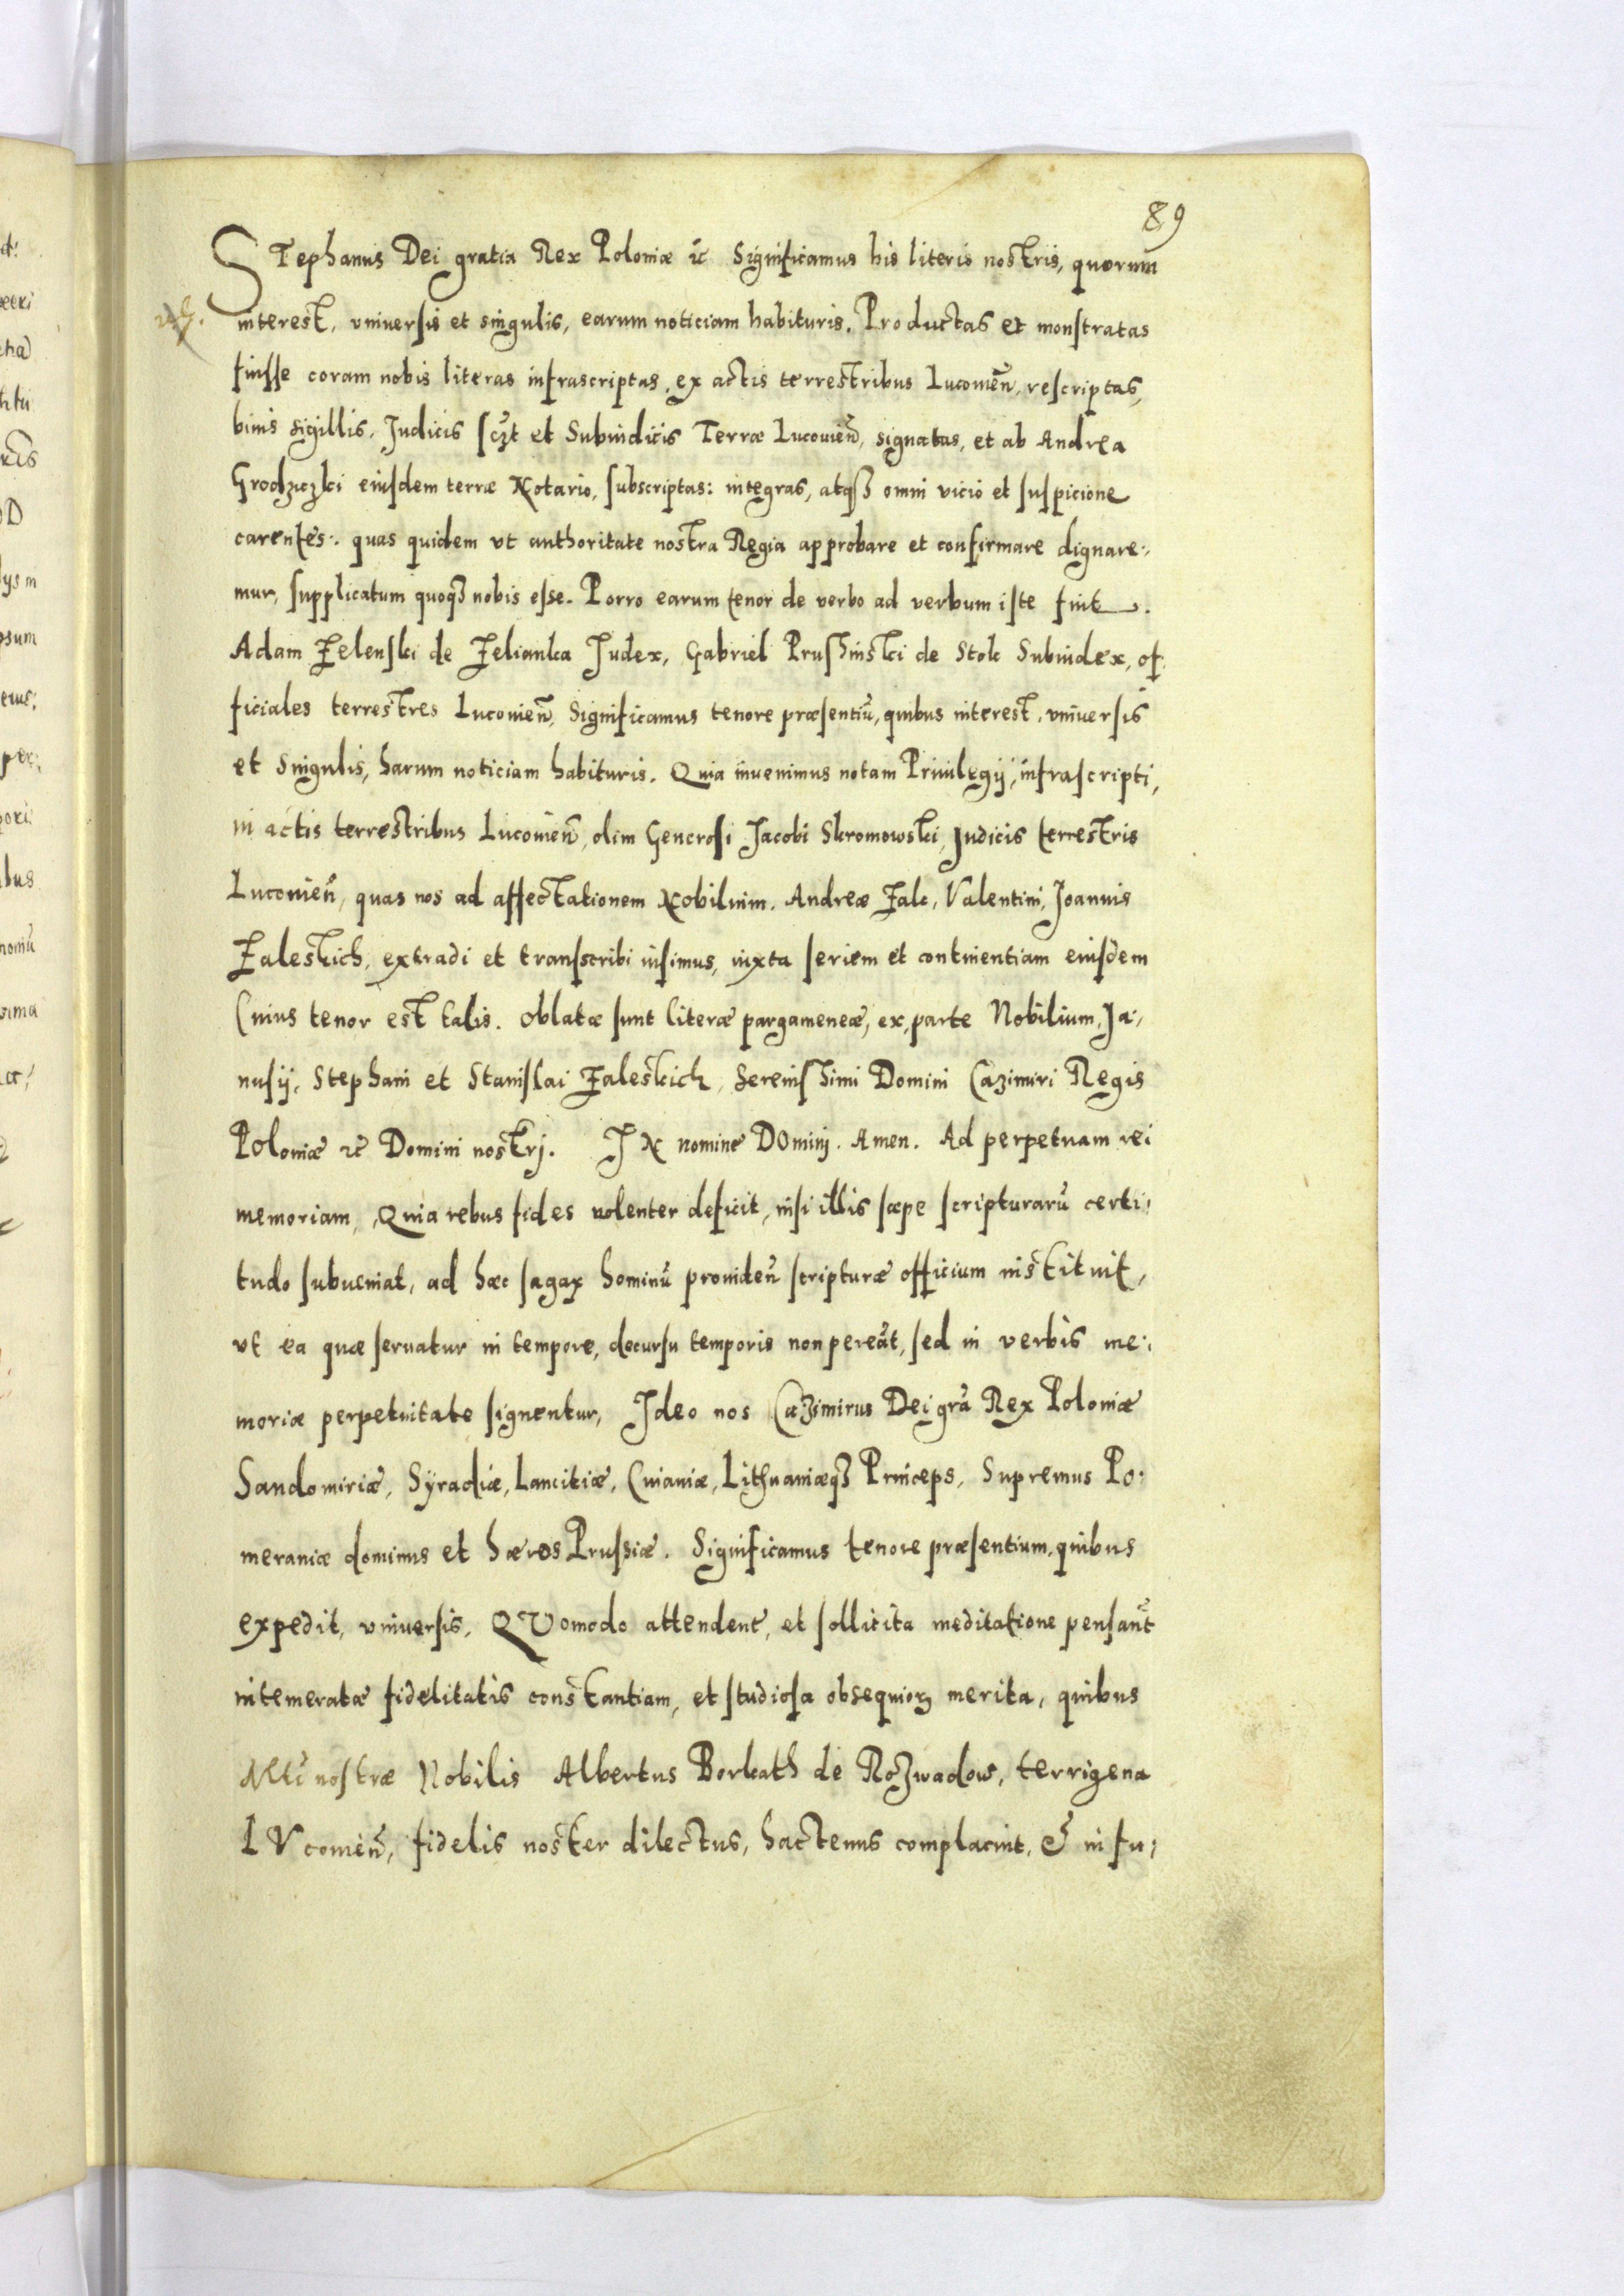 89
STephanus Dei gratia Rex Poloniæ ꝛc Significamus his literis nostris, quorum
interest, vniuersis et singulis, earum noticiam habituris. Productas et monstratas
fuisse coram nobis literas infrascriptas, ex actis terrestribus Lucouień, rescriptas,
binis sigillis, Judicis sczt et Subiudicis Terræ Lucouień, signatas, et ab Andrea
Grodziczki eiusdem terræ Notario, subscriptas: integras, atqȝ omni vicio et suspicione
carentes: quas quidem vt authoritate nostra Regia approbare et confirmare dignare:
mur, supplicatum quoqȝ nobis esse. Porro earum tenor de verbo ad verbum iste fuit.
Adam Zelenski de Zelianka Judex, Gabriel Prusſinski de Stok Subiudex, of
ficiales terrestres Lucouień, Significamus tenore præsentiū, quibus interest, vniuersis
et singulis, harum noticiam habituris. Quia inuenimus notam Priuilegij, infrascripti,
in actis terrestribus Lucouień, olim Generosi Jacobi Skromowski, Judicis terrestris
Lucouień, quas nos ad affectationem Nobilium. Andreæ Zalc, Valentini, Joannis
Zaleskich, extradi et transcribi iusimus, iuxta seriem et continentiam eiusdem
Cuius tenor est talis. Oblatæ sunt literæ pargameneæ, ex parte Nobilium, Ja:
nusij, Stephani et Stanislai Zaleskich, Serenissimi Domini Cazimiri Regis
Poloniæ ꝛc Domini nostrj. JN nomine DOminj. Amen. Ad perpetuam rei
memoriam, Quia rebus fides uolenter deficit, nisi illis sæpe scripturarū certi:
tudo subueniat, ad hæc sagax hominū prouideń scripturæ officium instituit,
vt ea quæ seruatur in tempore, decursu temporis non pereāt, sed in verbis me:
moriæ perpetuitate signentur, Jdeo nos Cazimirus Dei grā Rex Poloniæ
Sandomiriæ, Syradiæ, Lancitiæ, Cuiauiæ, Lithuaniæqȝ Princeps, Supremus Po:
meraniæ dominus et hæres Prussiæ. Significamus tenore præsentium, quibus
expedit, vniuersis, QVomodo attendent, et sollicita meditatione pensant
intemeratæ fidelitatis constantiam, et studiosa obsequioꝝ merita, quibus
Mtti nostræ Nobilis Albertus Borkath de Rozwadow, terrigena
LVcouień, fidelis noster dilectus, hactenus complacuit, & in fu: